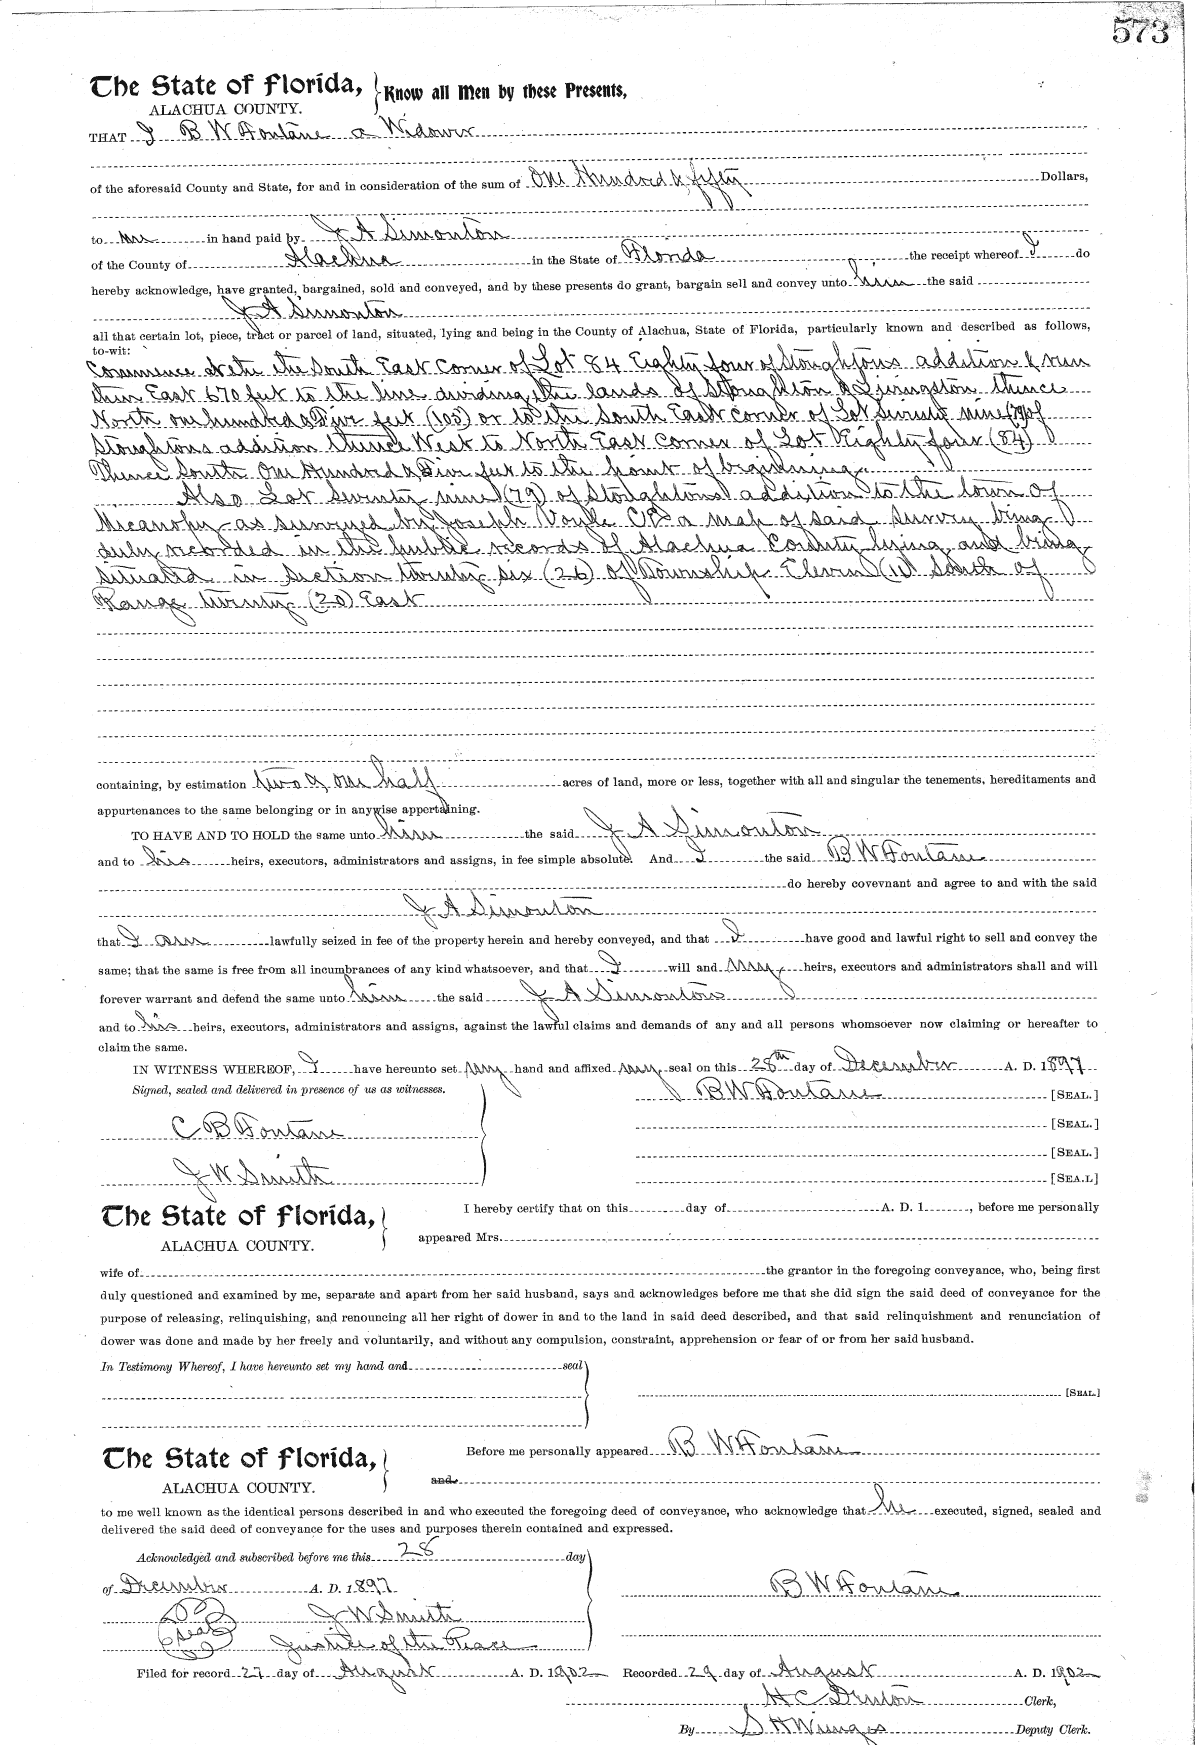 573
The State of Florida, } Know all Men by these Presents,
ALACHUA COUNTY.
THAT I B W Fontane a Widower
of the aforesaid County and State, for and in consideration of the sum of One Hundred & fifty Dollars,
to me in hand paid by J A Simonton
of the County of Alachua in the State of Florida the receipt whereof I do
hereby acknowledge, have granted, bargained, sold and conveyed, and by these presents do grant, bargain sell and convey unto him the said
J A Simonton
all that certain lot, piece, tract or parcel of land, situated, lying and being in the County of Alachua, State of Florida, particularly known and described as follows,
to-wit:
Commence at the the South East Corner of Lot 84 Eighty four of Stoughtons addition & run
then East 670 feet to the line dividing the lands of Stoughton & Livingston thence
North one hundred & Five feet (105) or to the South East corner of Lot Seventy nine (79) of
Stoughtons addition thence West to North East corner of Lot Eighty four (84)
Thence South One Hundred & Five feet to the point of beginning.
Also Lot Seventy nine (79) of Stoughtons addition to the town of
Micanopy as surveyed by Joseph Voyle CE a map of said survey being
duly recorded in the public records of Alachua County lying and being
situated in Section twenty six (26) of Township Eleven (11) South of
Range twenty (20) East
containing, by estimation two & one half acres of land, more or less, together with all and singular the tenements, hereditaments and
appurtenances to the same belonging or in anywise appertaining.
TO HAVE AND TO HOLD the same unto him the said J A Simonton
and to his heirs, executors, administrators and assigns, in fee simple absolute. And I the said B W Fontane
do hereby covevnant and agree to and with the said
J A Simonton
that I am lawfully seized in fee of the property herein and hereby conveyed, and that I have good and lawful right to sell and convey the
same; that the same is free from all incumbrances of any kind whatsoever, and that I will and my heirs, executors and administrators shall and will
forever warrant and defend the same unto him the said J A Simonton
and to his heirs, executors, administrators and assigns, against the lawful claims and demands of any and all persons whomsoever now claiming or hereafter to
claim the same.
IN WITNESS WHEREOF, I have hereunto set my hand and affixed my seal on this 28th day of December A. D. 1897
Signed, sealed and delivered in presence of us as witnesses. B W Fontane [SEAL.]
C B Fontane [SEAL.]
[SEAL.]
J W Smith [SEA.L]
The State of Florida, } I hereby certify that on this day of A. D. 1 , before me personally
ALACHUA COUNTY. appeared Mrs.
wife of the grantor in the foregoing conveyance, who, being first
duly questioned and examined by me, separate and apart from her said husband, says and acknowledges before me that she did sign the said deed of conveyance for the
purpose of releasing, relinquishing, and renouncing all her right of dower in and to the land in said deed described, and that said relinquishment and renunciation of
dower was done and made by her freely and voluntarily, and without any compulsion, constraint, apprehension or fear of or from her said husband.
In Testimony Whereof, I have hereunto set my hand and seal
[SEAL.]
The State of Florida, } Before me personally appeared B W Fontane
ALACHUA COUNTY. and
to me well known as the identical persons described in and who executed the foregoing deed of conveyance, who acknowledge that he executed, signed, sealed and
delivered the said deed of conveyance for the uses and purposes therein contained and expressed.
Acknowledged and subscribed before me this 28 day
of December A. D. 1897 B W Fontane
J W Smith
seal Justice of the Peace
Filed for record 27 day of August A. D. 1902 Recorded 29 day of August A. D. 1902
H C Denton Clerk,
By S H Wienges Deputy Clerk.